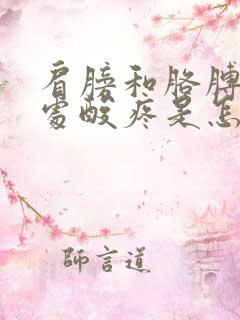 肩膀和胳膊
处酸疼是怎
師言道